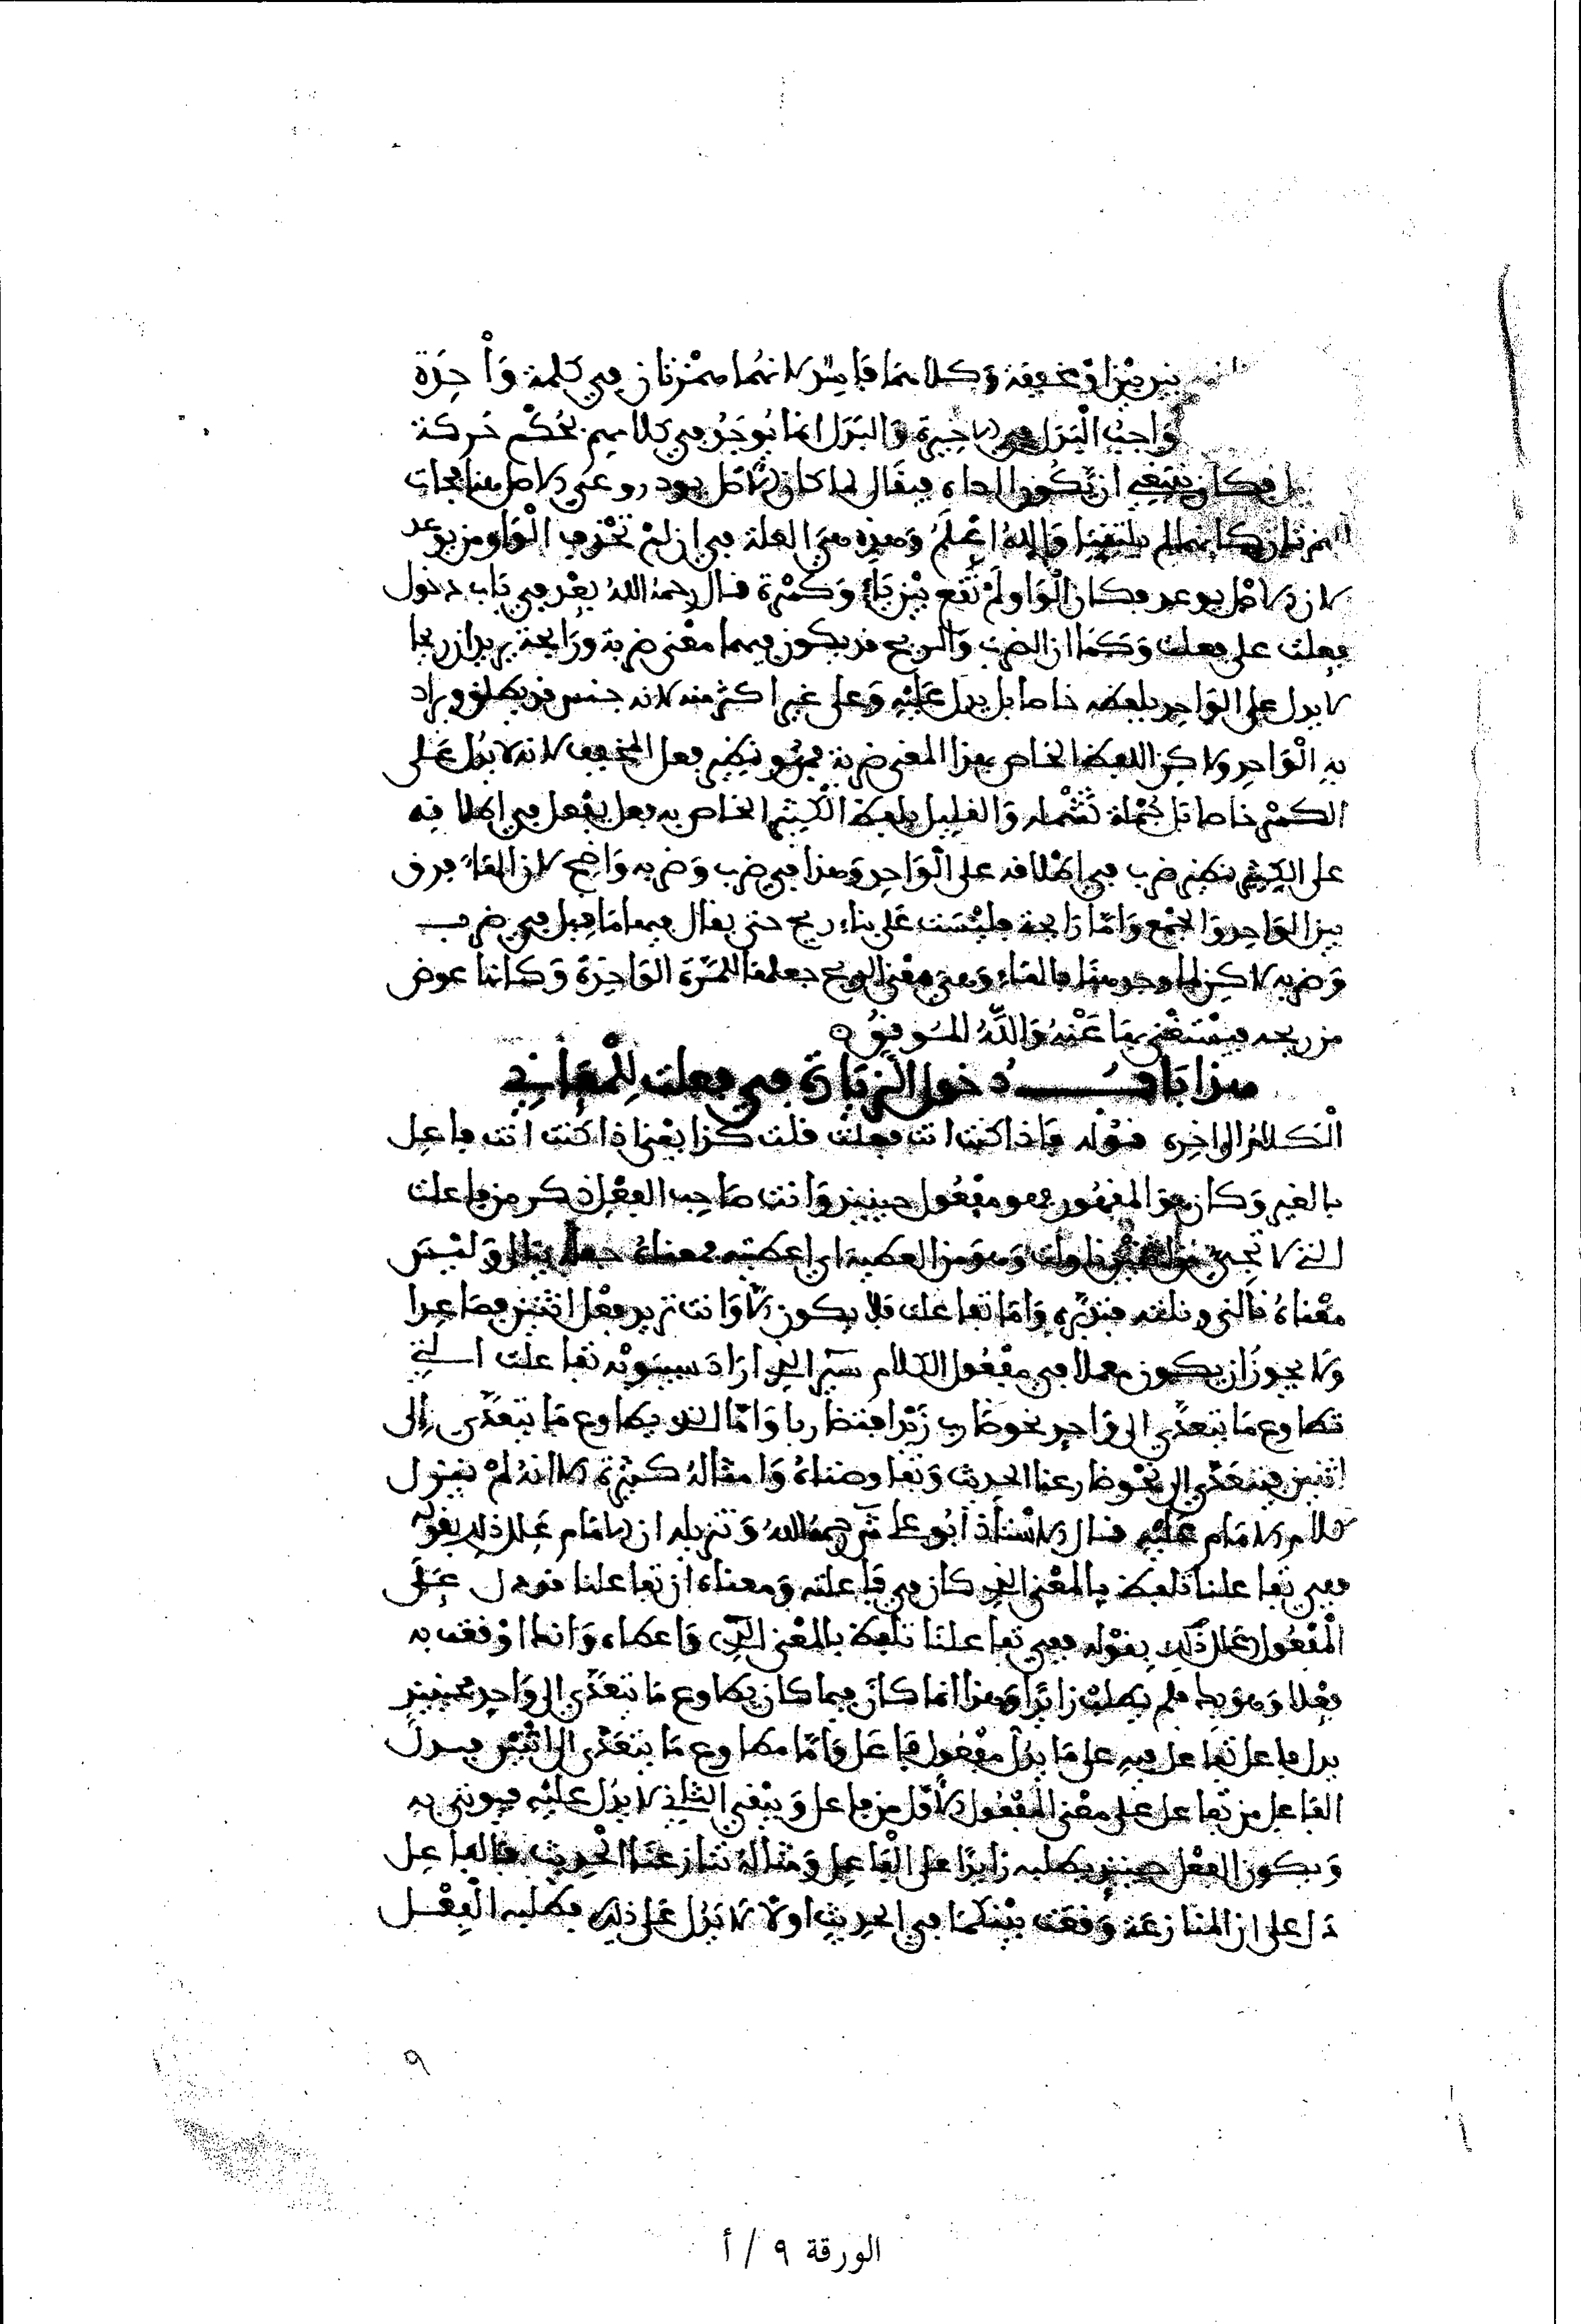 بين بين او مخففة وكلاهما فاسد لانهما همزتان في كلمة واحدة
واجب البدل في الاخيرة والبدل انما يوجد في كلامهم بحكم حركة
فكان ينبغي ان تكون الحاء فيقال لما كان الاصل
الهمزتان كانهما لم يلتقيا والله اعلم وهذه هي العلة في ان لم تحذف الواو من يوعد
لان الاصل يوعد فكان الواو لم تقع بين ياء وكسرة قال رحمه الله بعد في باب دخول
فعلت على فعلت وكما ان الضرب والريح قد يكون فيهما معنى ضربة ورايحة يريد ان ريحا
لا يدل على الواحد بلفظه خاصا بل يدل عليه وعلى غير اكثر منه لانه جنس فقد يطلق ويراد
به الواحد ولاكن اللفظ الخاص بهذا المعنى ضربة فهو نظير فعل المخفف لانه لا يدل على
الكثير خاصا بل جملة تشمله والقليل ولفظ الكثير الخاص به فعل يفعل في اطلاقه
على الكثير نظير ضرب في اطلاقه على الواحد وهذا في ضرب وضربه واضح لان الهاء فرق
بين الواحد والجمع واما رايحة فليست على بناء ريح حتى يقال فيها ما قيل في ضرب
وضربه لاكن لما وجدها بالهاء وهي معنى الريح جعلها للمرة الواحدة وكانها عوض
من ريحه فيستغنى بها عنه والله الموفق
هذا باب دخول الزيادة في فعلت للمعاني
الكلام الى اخره قوله فاذا كنت انت فعلت قلت كذا يعني اذا كنت انت فاعل
بالغير وكان هو المقهور فهو مفعول حينيذ وانت صاحب الفعل ذكر من فاعلت
التي لا تجيء من اثنين ناولت وهو من العطية اي اعطيته فمعناه وليس
معناه نالني ونلته فتدبره واما تفاعلت فلا يكون الا وانت تريد فعل اثنين فصاعدا
ولا يجوز ان يكون معملا في مفعول الكلام سيرافي اراد سيبويه تفاعلت التي
تطاوع ما يتعدى الى واحد نحو ضارب زيدا فتضاربا واما الذي يطاوع ما يتعدى الى
اثنين فيتعدى الى نحو نازعنا الحديث وتفاوضناه وامثاله كثيرة الا انه لم ينزل
كلام الامام عليه قال الاستاذ ابو علي رحمه الله وتنزيله ان الامام علل ذلك بقوله
ففي تفاعلنا تلفظ بالمعنى الذي كان في فاعلته ومعناه ان تفاعلنا قد دل على
المفعول علل ذلك بقوله ففي تفاعلنا تلفظ بالمعنى الذي واعطاه وانها اوقعت به
فعلا وهو به فلم يطلب زايدا وهذا انما كان فيما كان يطاوع ما يتعدى الى واحد فحينيذ
يدل فاعل تفاعل فيه على ما يدل مفعول فاعل واما مطاوع ما يتعدى الى اثنين فيدل
الفاعل من تفاعل على معنى المفعول الاول من فاعل ويبقى الثاني لا يدل عليه فيوتى به
ويكون الفعل حينيذ يطلبه زايدا على الفاعل ومثاله تنازعنا الحديث فالفاعل
دل على ان المنازعة وقعت بينكما في الحديث او لا لا يدل على ذلك فطلبه الفعل
٩
الورقة ٩ / أ